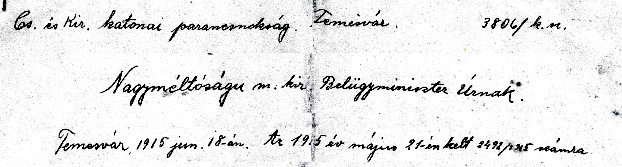 Cs. és Kir. katonai parancsnokság. Temesvár. 3806/k.n.
Nagyméltóságu m. kir. Belügyminister Úrnak.
Temesvár, 1915 jun. 18-án. Az 1915 év május 21-én kelt 2492/1915 számra